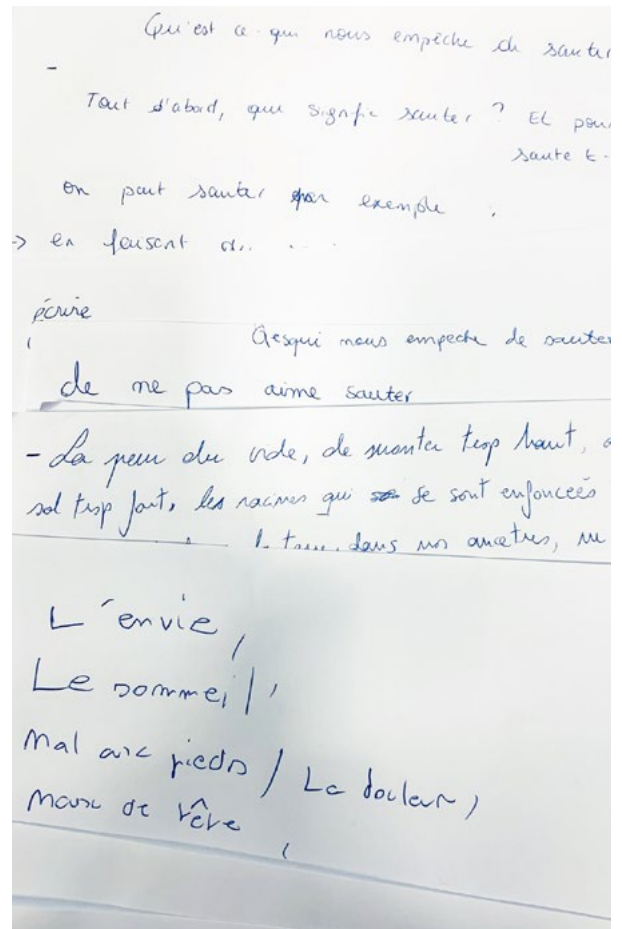 Qu'est ce qui nous empêche de sauter
-
Tout d'abord, que signifie sauter ? Et pour
saute t-
on peut sauter par exemple .
-> en faisant
écrire
Qesqui nous empeche de sauter
de ne pas aime sauter
- La peur du vide, de monter trop haut,
sol trop fort, les racines qui se sont enfonceés
dans nos ancetres, ne
L'envie,
Le sommeil,
Mal aux pieds / La douleur,
Manx de rêve